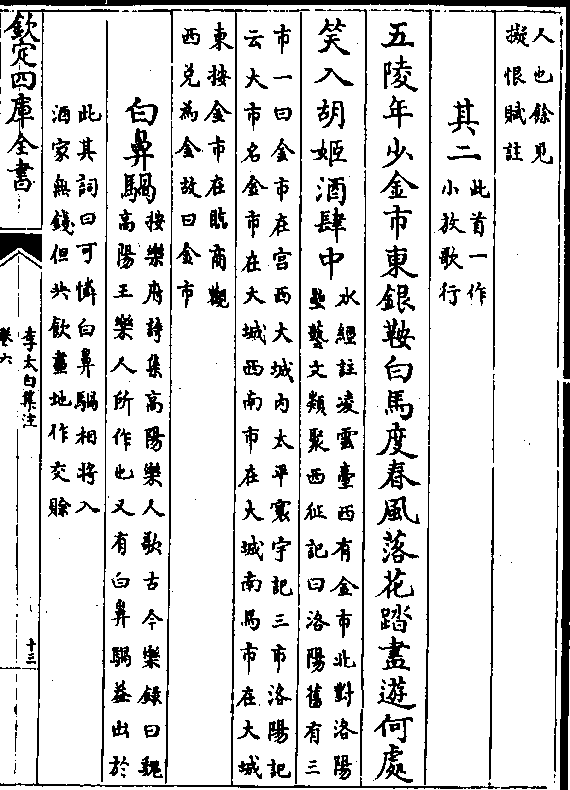 人也餘見
擬恨賦註
其二
此首一作
小放歌行
五陵年少金市東銀鞍白馬度春風落花踏盡遊何處
笑入胡姬酒肆中
水經註凌雲臺西有金市北對洛陽
壘藝文類聚西征記曰洛陽舊有三
市一曰金市在宮西大城內太平寰宇記三市洛陽記
云大市名金市在大城西南市在大城南馬市在大城
東按金市在臨商觀
西兌為金故曰金市
白鼻騧
按樂府詩集高陽樂人歌古今樂錄曰魏
高陽王樂人所作也又有白鼻騧葢出於
此其詞曰可憐白鼻騧相將入
酒家無錢但共飲畫地作交賒
欽定四庫全書
李太白集注
卷六
十三